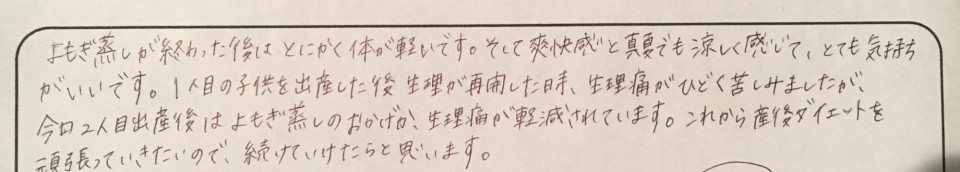 よもぎ蒸しが終わった後はとにかく体が軽いです。そして爽快感と真夏でも涼しく感じて、とても気持ち
がいいです。1人目の子供を出産した後生理が再開した時、生理痛がひどく苦しみましたが、
今回2人目出産後はよもぎ蒸しのおかげか、生理痛が軽減されています。これから産後ダイエットを
頑張っていきたいので、続けていけたらと思います。